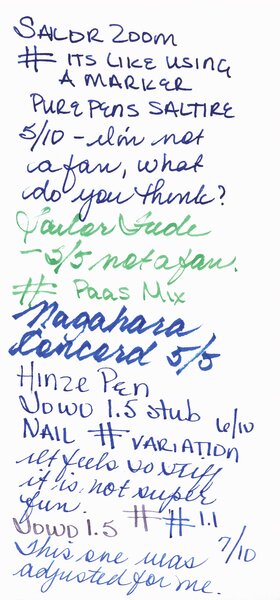 SAILOR ZOOM
# ITS LIKE USING
A MARKER
PURE PENS SALTIRE
5/10 - I'm not
a fan, what
do you think?
Sailor Fude
- 5/5 not a fan.
# PAAS MIX
Nagahara
Concord 5/5
HINZE PEN
JOWO 1.5 stub 6/10
NAIL # VARIATION
it feels so stiff
it is not super
fun. # # 1.1
JOWO 1.5 7/10
This one was
adjusted for me.